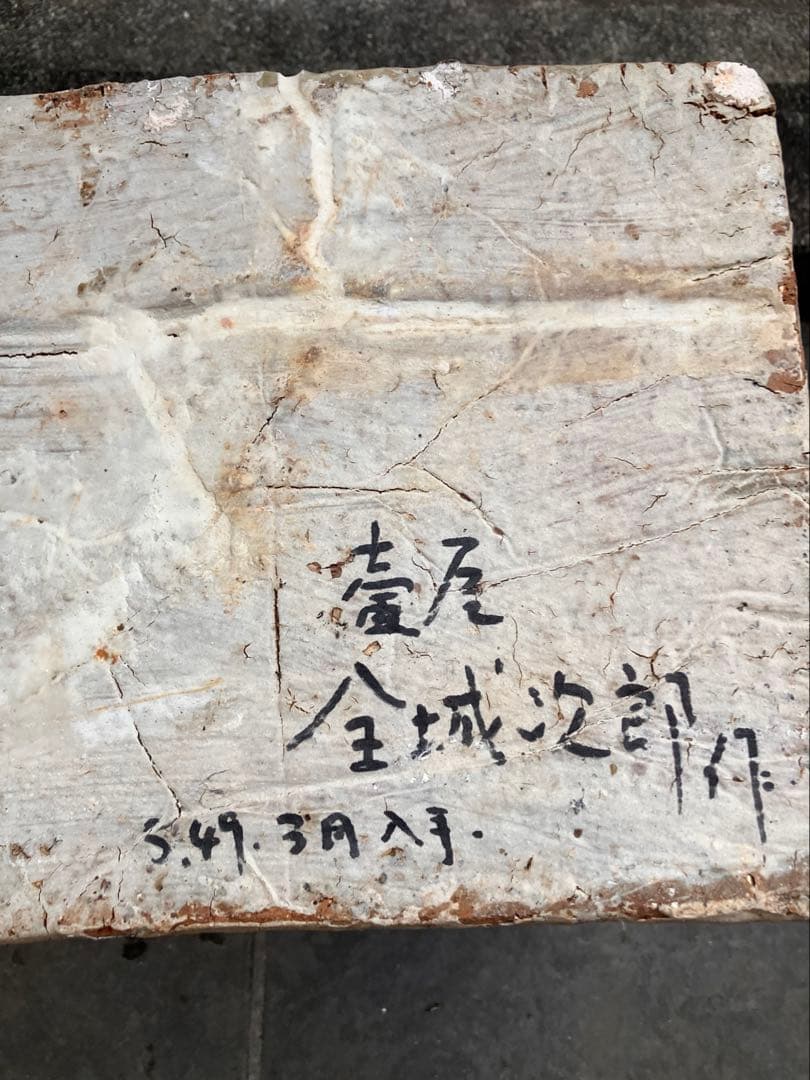 壷屋
金城次郎作
S.49.3月入手.